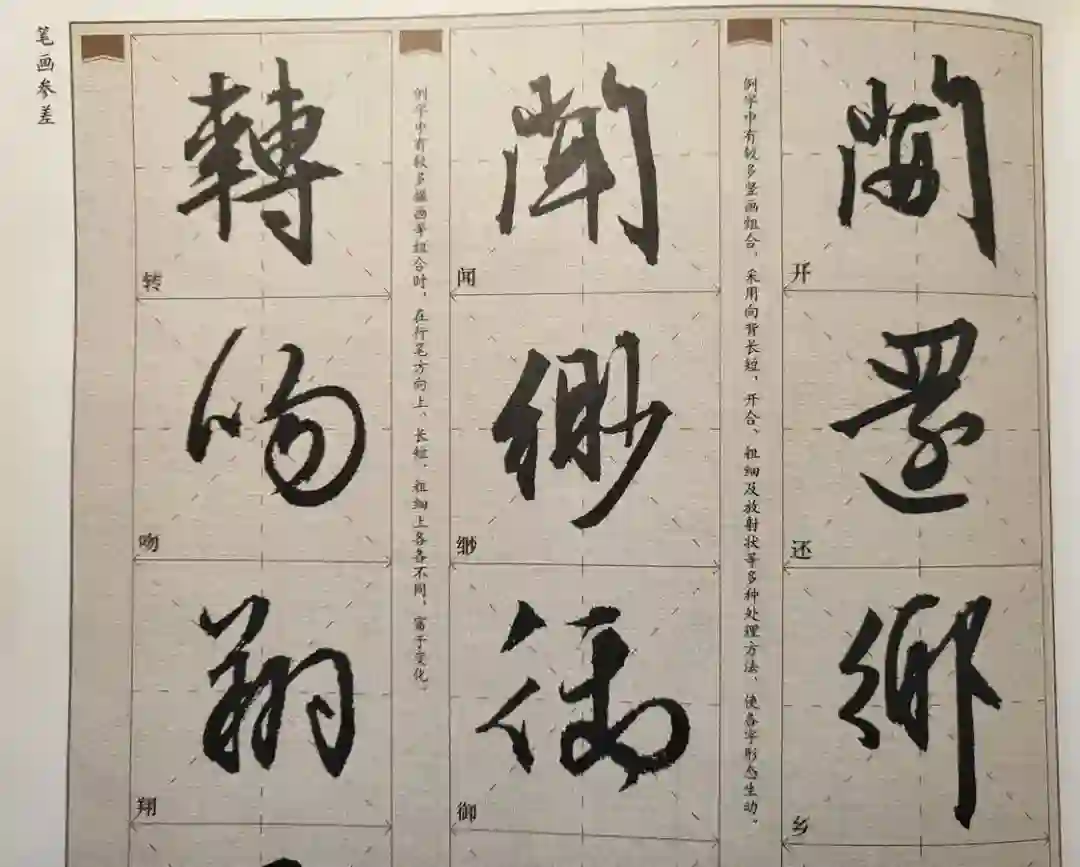 開
开
還
还
鄉
乡
例字中有较多竖画组合，采用向背长短，开合、粗细及放射状等多种处理方法，使各字形态生动。
聞
闻
緲
缈
御
御
例字中有较多撇画等组合时，在行笔方向上、长短、粗细上各各不同，富于变化。
轉
转
吻
吻
翔
翔
笔画参差